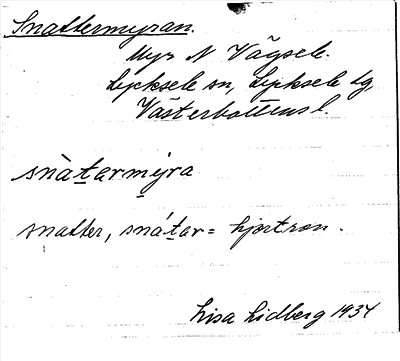 Snattermyran.
Myr N Vägsele.
Lycksele sn, Lycksele lg,
Västerbottens l.
snàtarmýra
snatter, snátar = hjortron.
Lisa Lidberg 1934